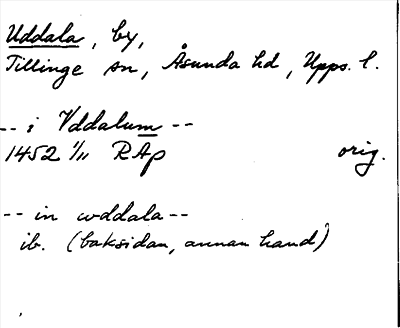 Uddala, by,
Tillinge sn, Åsunda hd, Upps. l.
-- i Vddalum --
1452 1/11 RAp orig.
-- in wddala --
ib. (baksidan, annan hand)